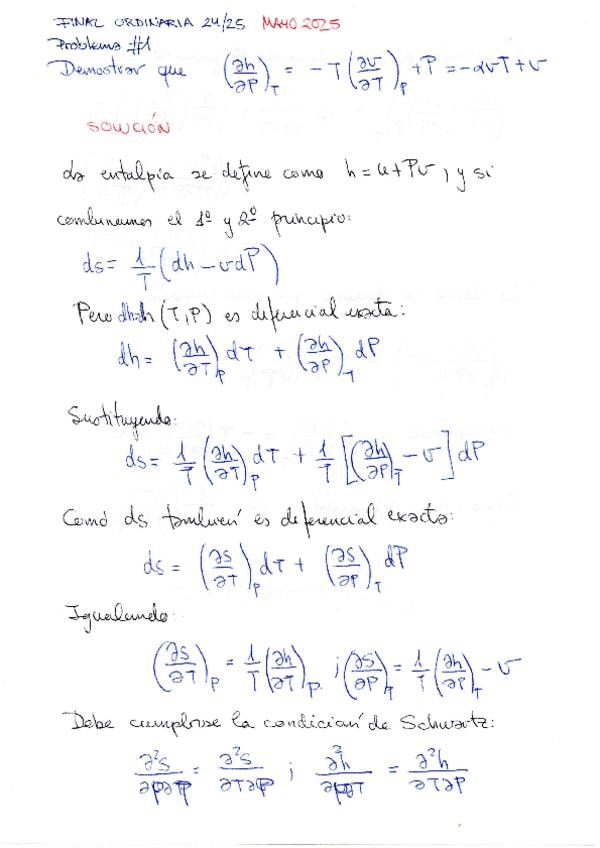 FINAL ORDINARIA 24/25 MAYO 2025
Problema #1
Demostrar que (∂h/∂P)_T = -T(∂v/∂T)_P + P = -αvT + v
SOLUCIÓN
La entalpía se define como h = u + Pv, y si
combinamos el 1º y 2º principio:
ds = 1/T (dh - vdP)
Pero dh=h (T,P) es diferencial exacta:
dh = (∂h/∂T)_P dT + (∂h/∂P)_T dP
Sustituyendo:
ds = 1/T (∂h/∂T)_P dT + 1/T [(∂h/∂P)_T - v] dP
Como ds también es diferencial exacta:
ds = (∂s/∂T)_P dT + (∂s/∂P)_T dP
Igualando:
(∂s/∂T)_P = 1/T (∂h/∂T)_P ; (∂s/∂P)_T = 1/T (∂h/∂P)_T - v
Debe cumplirse la condición de Schwartz:
∂²s/∂P∂T = ∂²s/∂T∂P ; ∂²h/∂P∂T = ∂²h/∂T∂P